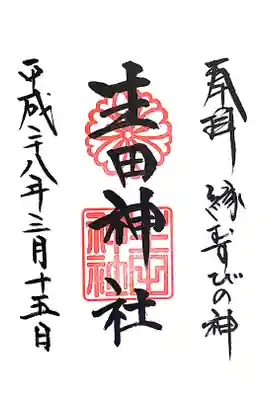 奉拝 縁むすびの神
生田神社
生田神社
平成二十八年三月十五日